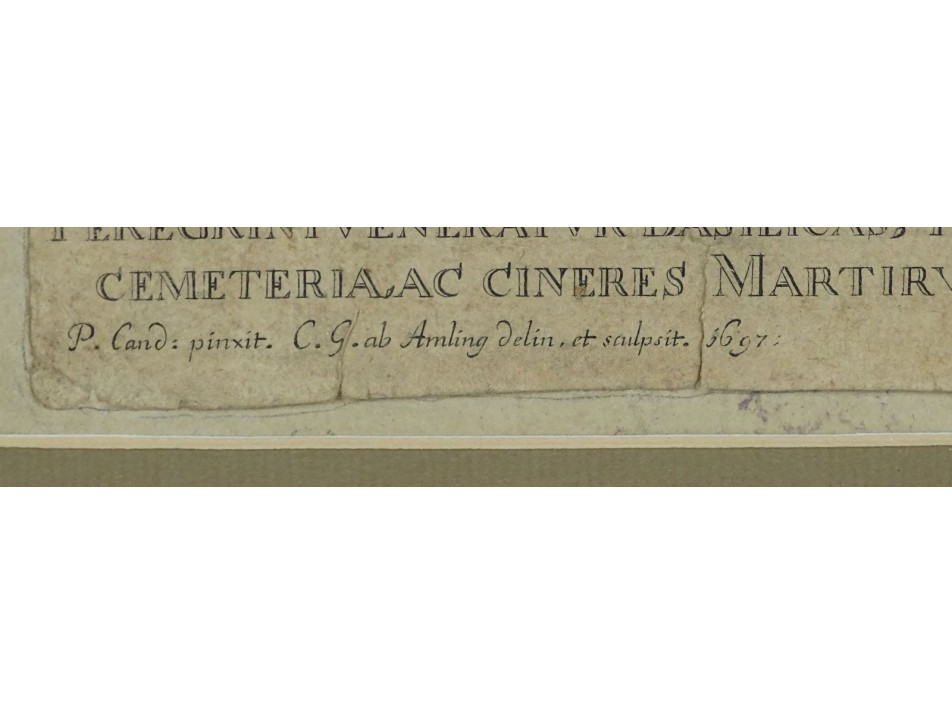 PEREGRINI VENERATVR BASILICAS,
CEMETERIA, AC CINERES MARTIRV
P. Cand: pinxit. C. G. ab Amling delin. et sculpsit. 1697: